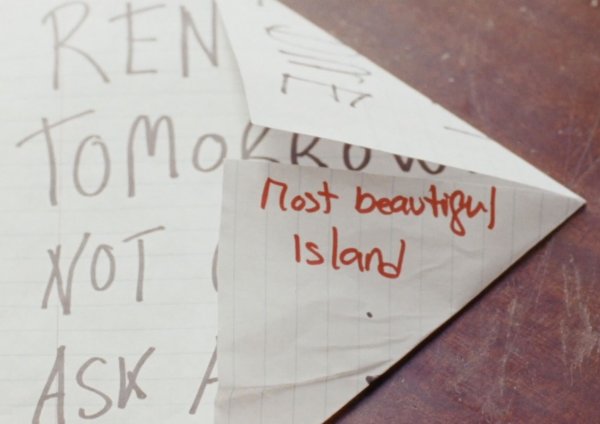 REN
TOMORROW
NOT
ASK A
Most beautiful
Island